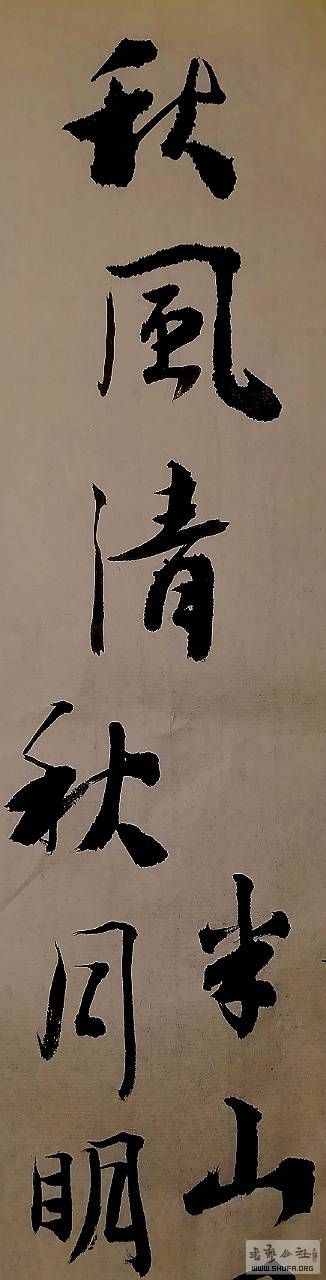 秋風清秋月明
半山
WWW.SHUFA.ORG